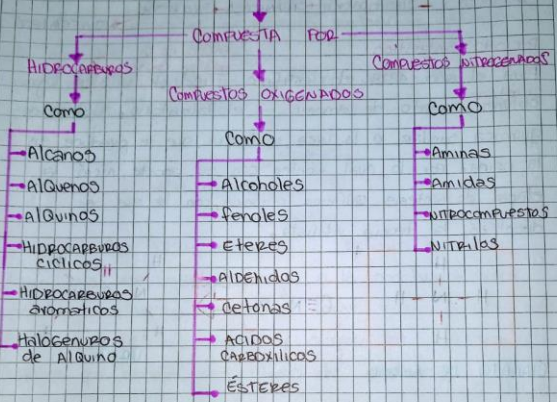 COMPUESTA POR
HIDROCARBUROS
como
Alcanos
AlQuenos
AlQuinos
HIDROCARBUROS
CICLICOS
HIDROCARBUROS
aromaticos
Halogenuros
de AlQuino
COMPUESTOS OXIGENADOS
como
Alcoholes
fenoles
Eteres
AlDEHidos
cetonas
ACIDOS
CARBOXILICOS
ÉSTERES
COMPUESTOS NITROGENADOS
como
Aminas
Amidas
NITROCOMPUESTOS
NITRILOS